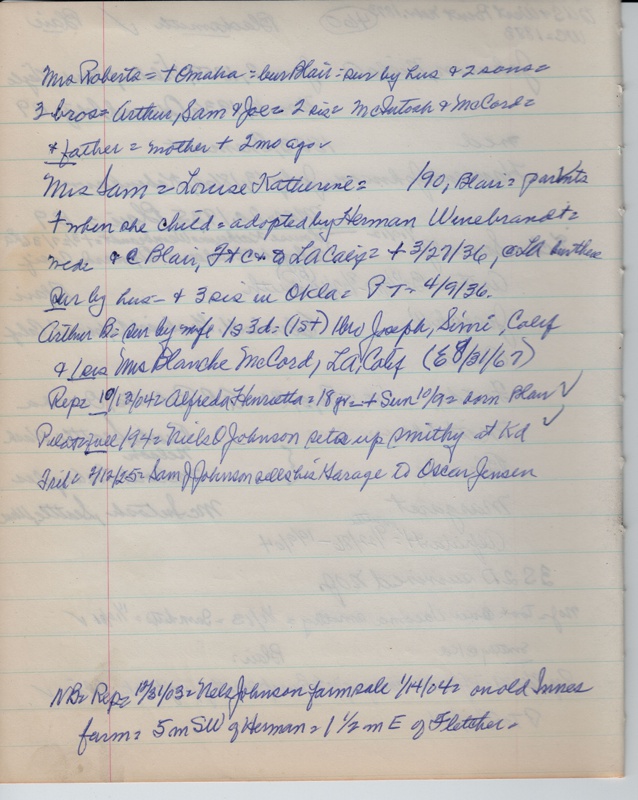 Mrs Roberts = + Omaha = bur Blair = sur by hus & 2 sons =
3 bros = Arthur, Sam & Joe = 2 sis = McIntosh & McCord =
& father = mother + 2 mo ago
Mrs Sam = Louise Katherine = /90, Blair = parents
+ when she child = adopted by Herman =
& C Blair, = + 3/27/36, @ LA
sur by hus - & 3 sis in Okla = P T = 4/9/36.
Arthur B = sur by wife & 3d = (1st) Mrs Joseph, Simi, Calif
& 1 sis Mrs Blanche McCord, LA, Calif (E 8/31/67)
Rep = 10/13/04 = Alfreda Henrietta = 18 yr = + Sun 10/9 = born Blair ✓
Pilot = /94 = Niels O Johnson sets up smithy at Kd ✓
Trib = 2/12/25 = Sam J Johnson sells his Garage to Oscar Jensen
NB = Rep = 12/31/03 = Nels Johnson farm sale 1/14/04 = on old Innes
farm = 5 m SW of Herman = 1 1/2 m E of Fletcher =